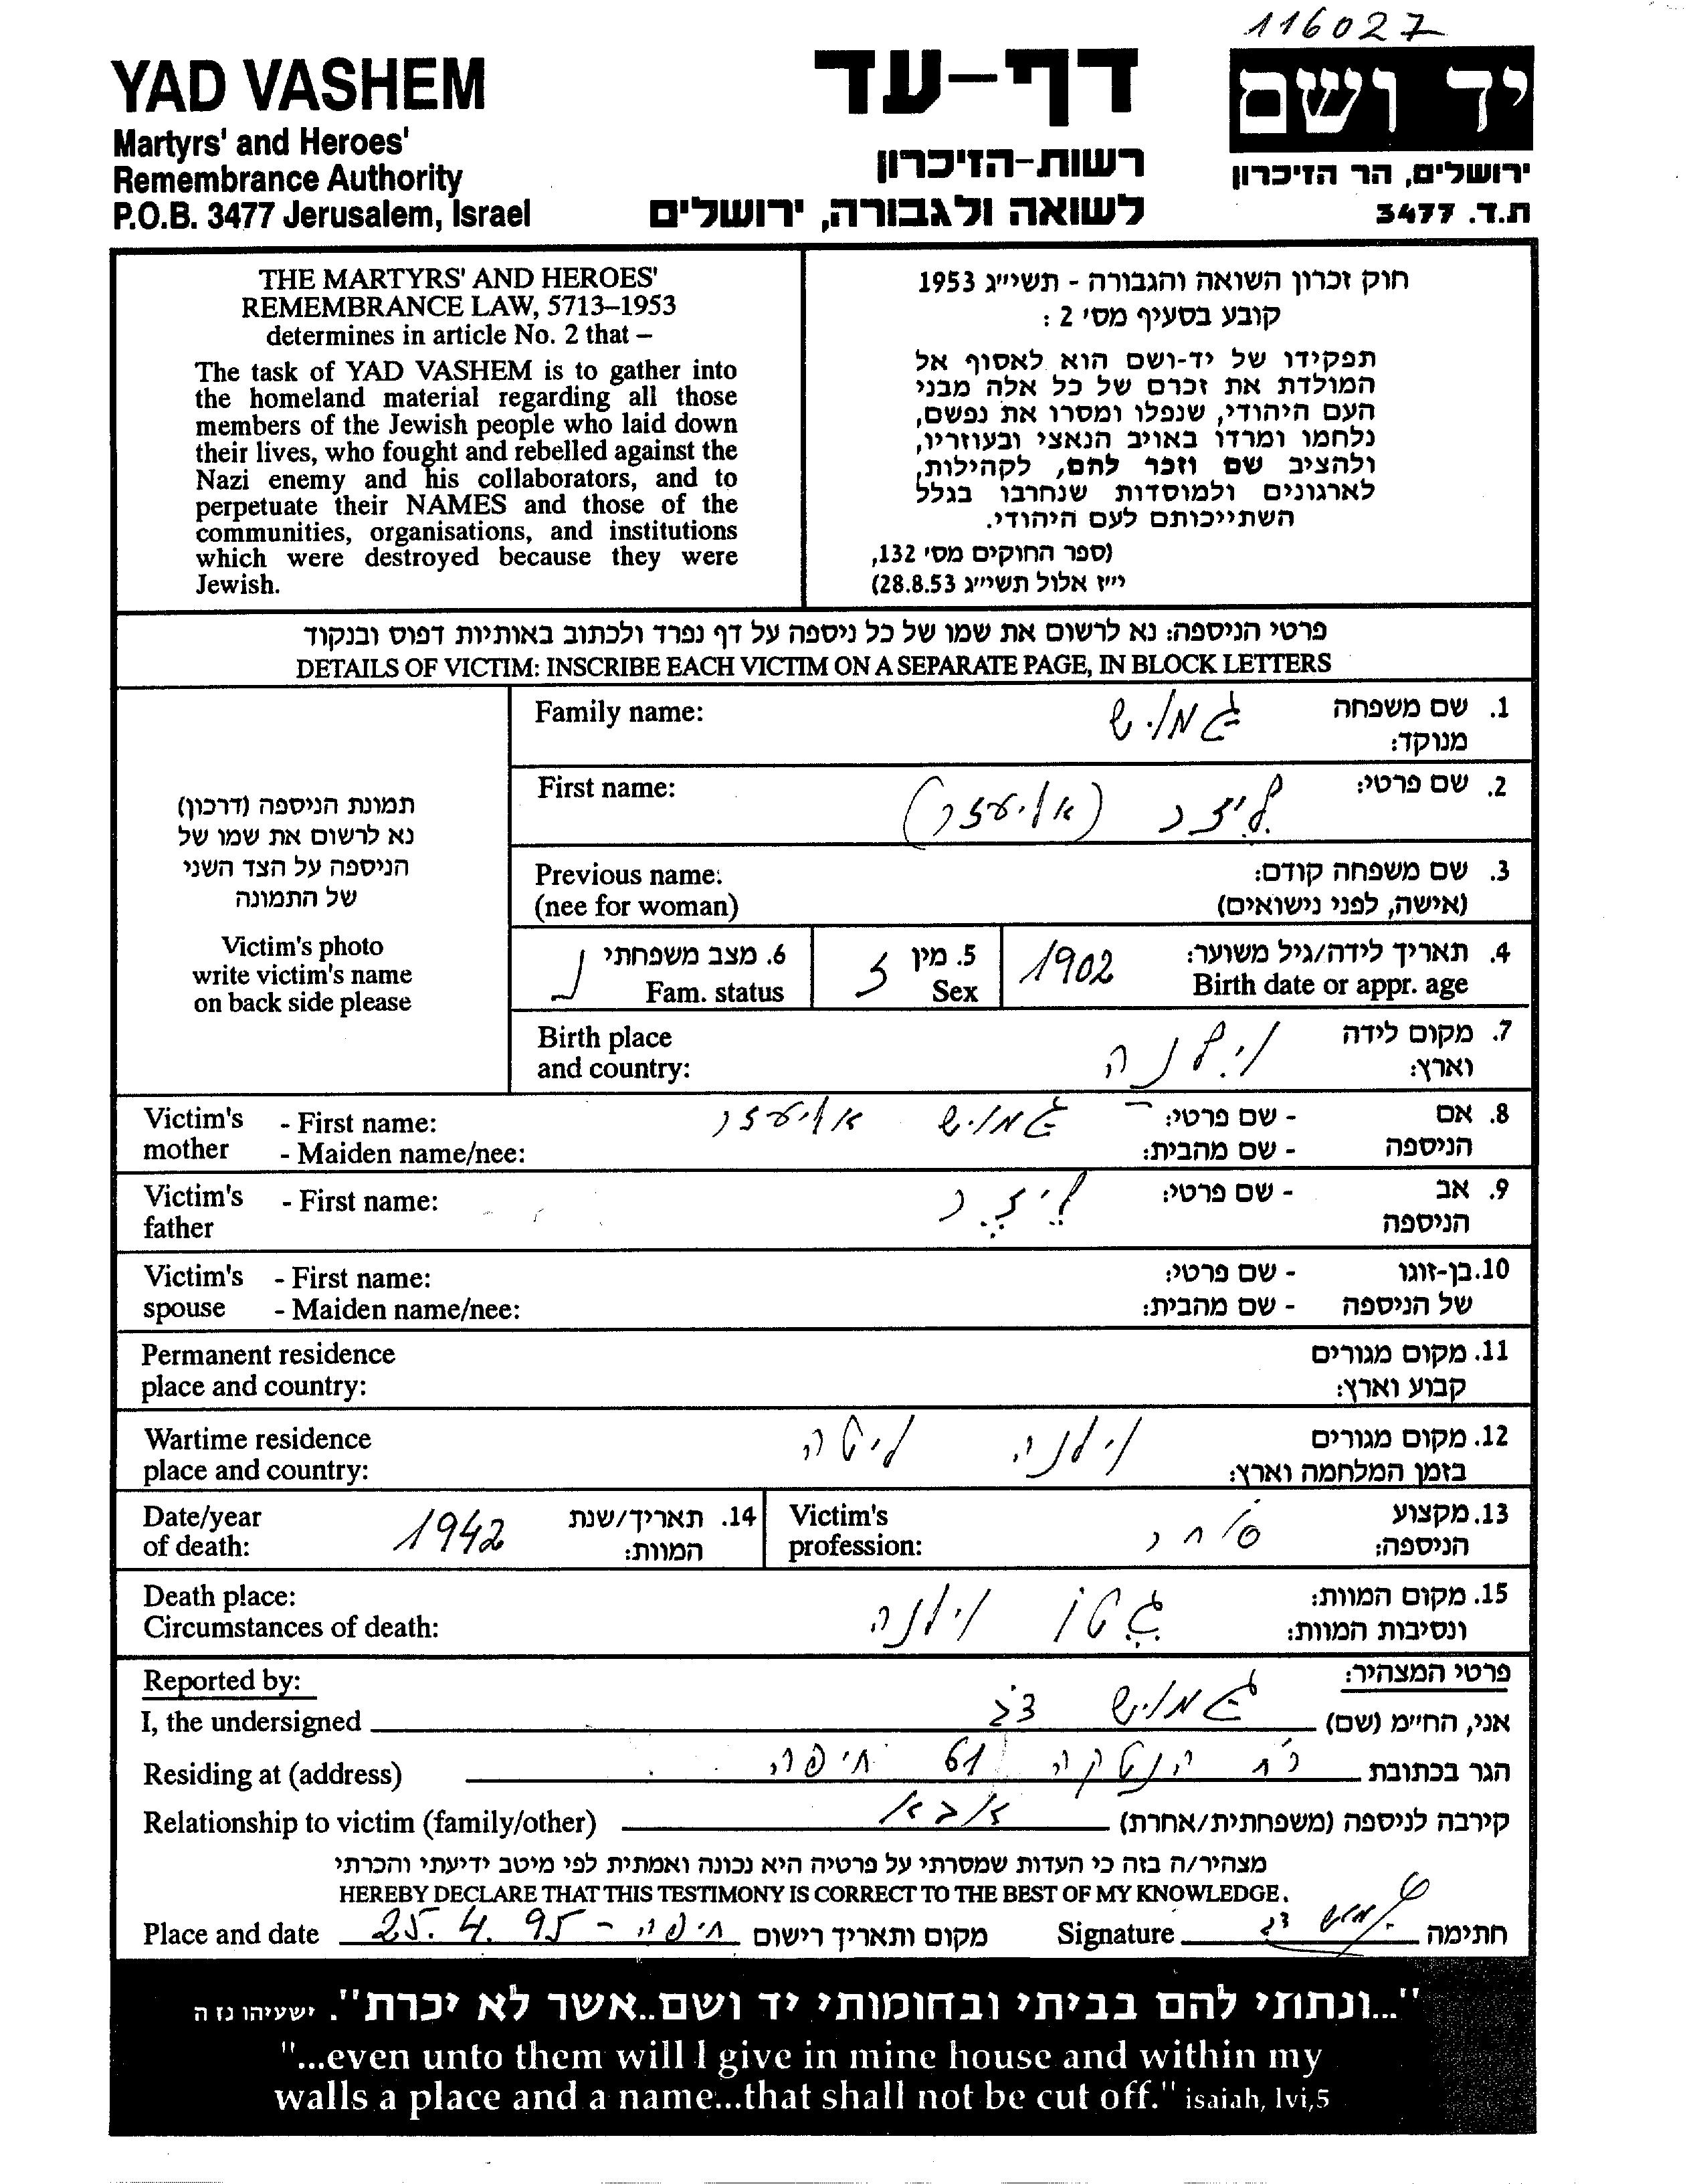 116027
YAD VASHEM
Martyrs' and Heroes'
Remembrance Authority
P.O.B. 3477 Jerusalem, Israel
דף-עד
רשות-הזיכרון
לשואה ולגבורה, ירושלים
יד ושם
ירושלים, הר הזיכרון
ת.ד. 3477
THE MARTYRS' AND HEROES'
REMEMBRANCE LAW, 5713–1953
determines in article No. 2 that –
The task of YAD VASHEM is to gather into
the homeland material regarding all those
members of the Jewish people who laid down
their lives, who fought and rebelled against the
Nazi enemy and his collaborators, and to
perpetuate their NAMES and those of the
communities, organisations, and institutions
which were destroyed because they were
Jewish.
חוק זכרון השואה והגבורה - תשי״ג 1953
קובע בסעיף מס' 2 :
תפקידו של יד-ושם הוא לאסוף אל
המולדת את זכרם של כל אלה מבני
העם היהודי, שנפלו ומסרו את נפשם,
נלחמו ומרדו באויב הנאצי ובעוזריו,
ולהציב שם וזכר להם, לקהילות,
לארגונים ולמוסדות שנחרבו בגלל
השתייכותם לעם היהודי.
(ספר החוקים מס' 132,
י״ז אלול תשי״ג 28.8.53)
פרטי הניספה: נא לרשום את שמו של כל ניספה על דף נפרד ולכתוב באותיות דפוס ובנקוד
DETAILS OF VICTIM: INSCRIBE EACH VICTIM ON A SEPARATE PAGE, IN BLOCK LETTERS
תמונת הניספה (דרכון)
נא לרשום את שמו של
הניספה על הצד השני
של התמונה
Victim's photo
write victim's name
on back side please
1. שם משפחה גמליש Family name:
מנוקד:
2. שם פרטי: לייזר (אליעזר) First name:
3. שם משפחה קודם: Previous name:
(אישה, לפני נישואים) (nee for woman)
4. תאריך לידה/גיל משוער: 1902 5. מין ז 6. מצב משפחתי נ
Birth date or appr. age Sex Fam. status
7. מקום לידה וילנה Birth place
וארץ: and country:
8. אם - שם פרטי: גמליש אליעזר Victim's - First name:
הניספה - שם מהבית: mother - Maiden name/nee:
9. אב - שם פרטי: לייזר Victim's - First name:
הניספה father
10. בן-זוגו - שם פרטי: Victim's - First name:
של הניספה - שם מהבית: spouse - Maiden name/nee:
11. מקום מגורים Permanent residence
קבוע וארץ: place and country:
12. מקום מגורים וילנה ליטה Wartime residence
בזמן המלחמה וארץ: place and country:
13. מקצוע סוחר Victim's
הניספה: profession:
14. תאריך/שנת 1942 Date/year
המוות: of death:
15. מקום המוות: גטו וילנה Death place:
ונסיבות המוות: Circumstances of death:
פרטי המצהיר: Reported by:
אני, הח״מ (שם) גמליש צבי I, the undersigned
הגר בכתובת 61 חיפה Residing at (address)
קירבה לניספה (משפחתית/אחרת) אבא Relationship to victim (family/other)
מצהיר/ה בזה כי העדות שמסרתי על פרטיה היא נכונה ואמתית לפי מיטב ידיעתי והכרתי
HEREBY DECLARE THAT THIS TESTIMONY IS CORRECT TO THE BEST OF MY KNOWLEDGE.
Place and date 25.4.95 - חיפה מקום ותאריך רישום Signature חתימה
"...ונתתי להם בביתי ובחומותי יד ושם..אשר לא יכרת". ישעיהו נז ה
"...even unto them will I give in mine house and within my
walls a place and a name...that shall not be cut off." isaiah, lvi,5